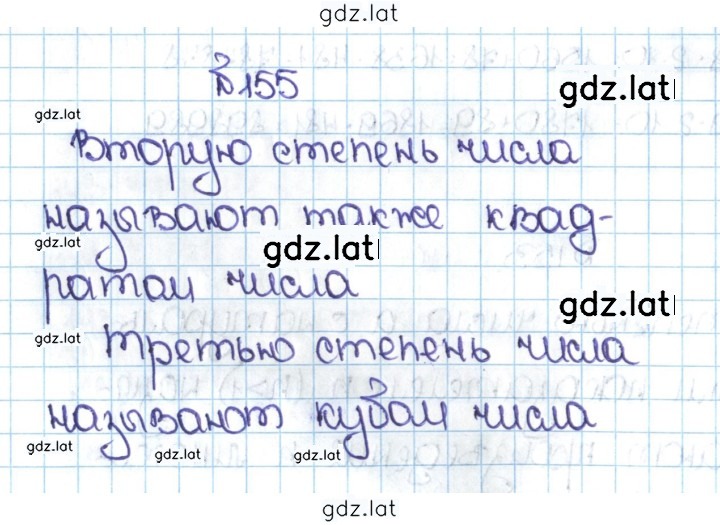 gdz.lat
№155
gdz.lat
gdz.lat
Вторую степень числа
называют также квад-
gdz.lat
gdz.lat
ратом числа
gdz.lat
gdz.lat
третью степень числа
называют кубом числа
gdz.lat
gdz.lat
gdz.lat
gdz.lat